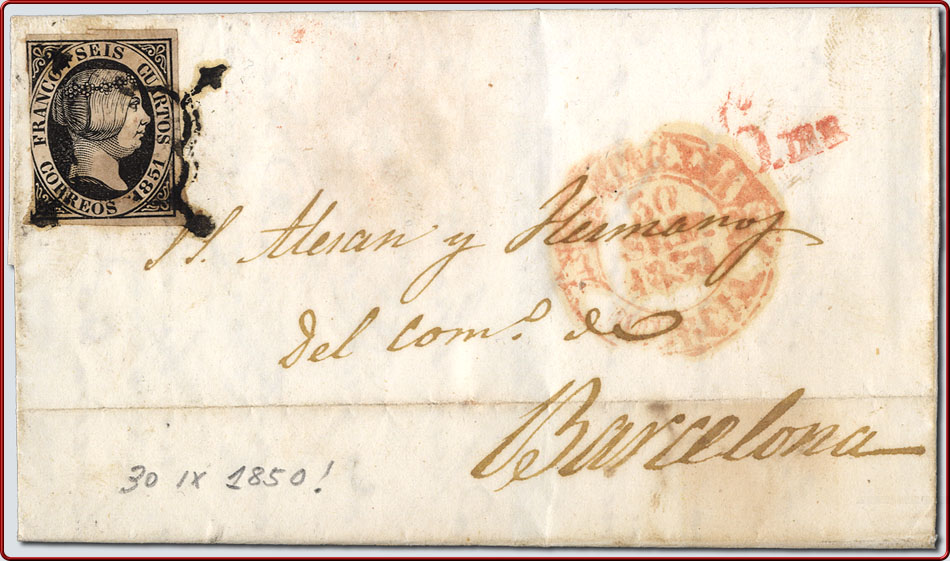 FRANCO SEIS CUARTOS 1851 CORREOS
30
SET
185
SS. Alesan y Hermanos
del Com.º de
Barcelona
30 IX 1850!